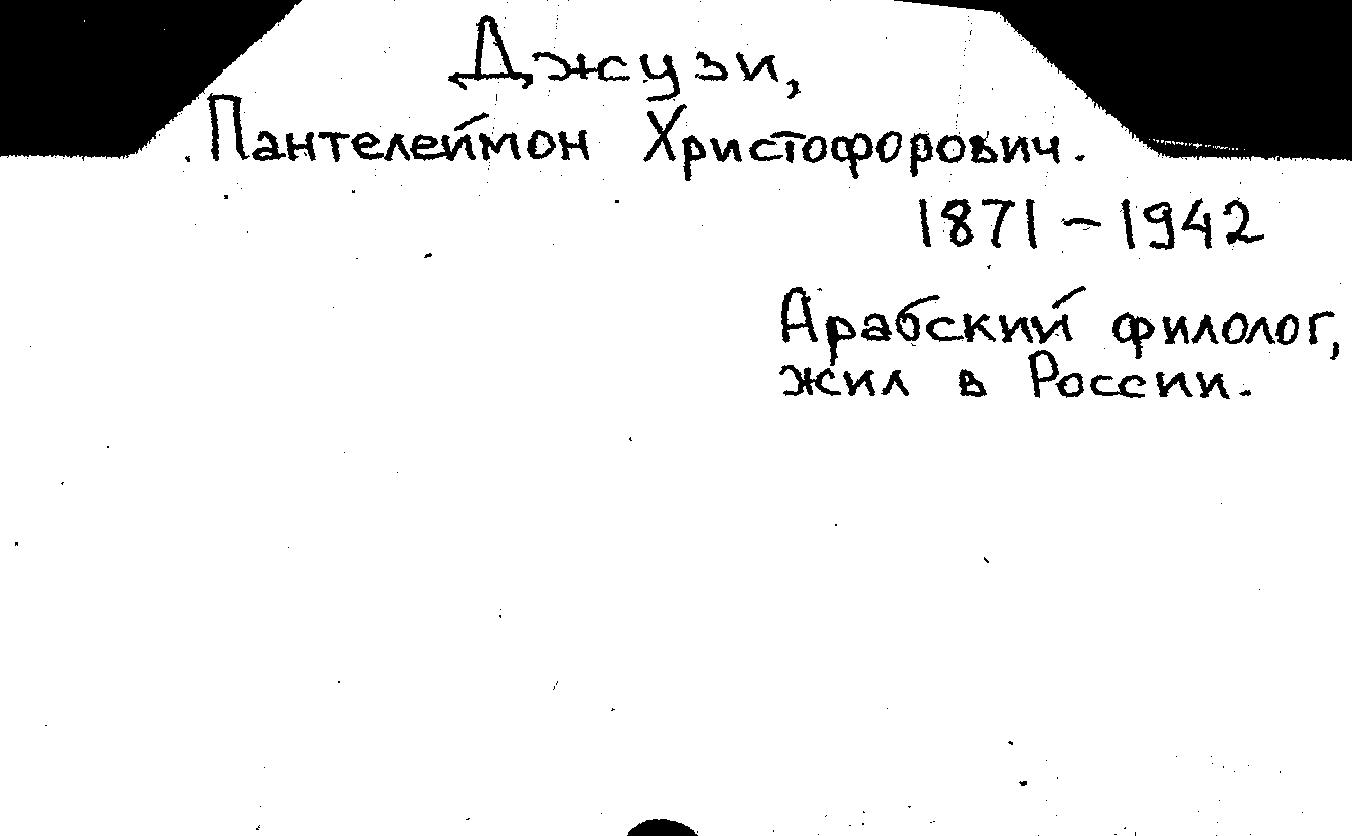 Джузи,
Пантелеймон Христофорович.
1871 - 1942
Арабский филолог,
жил в России.